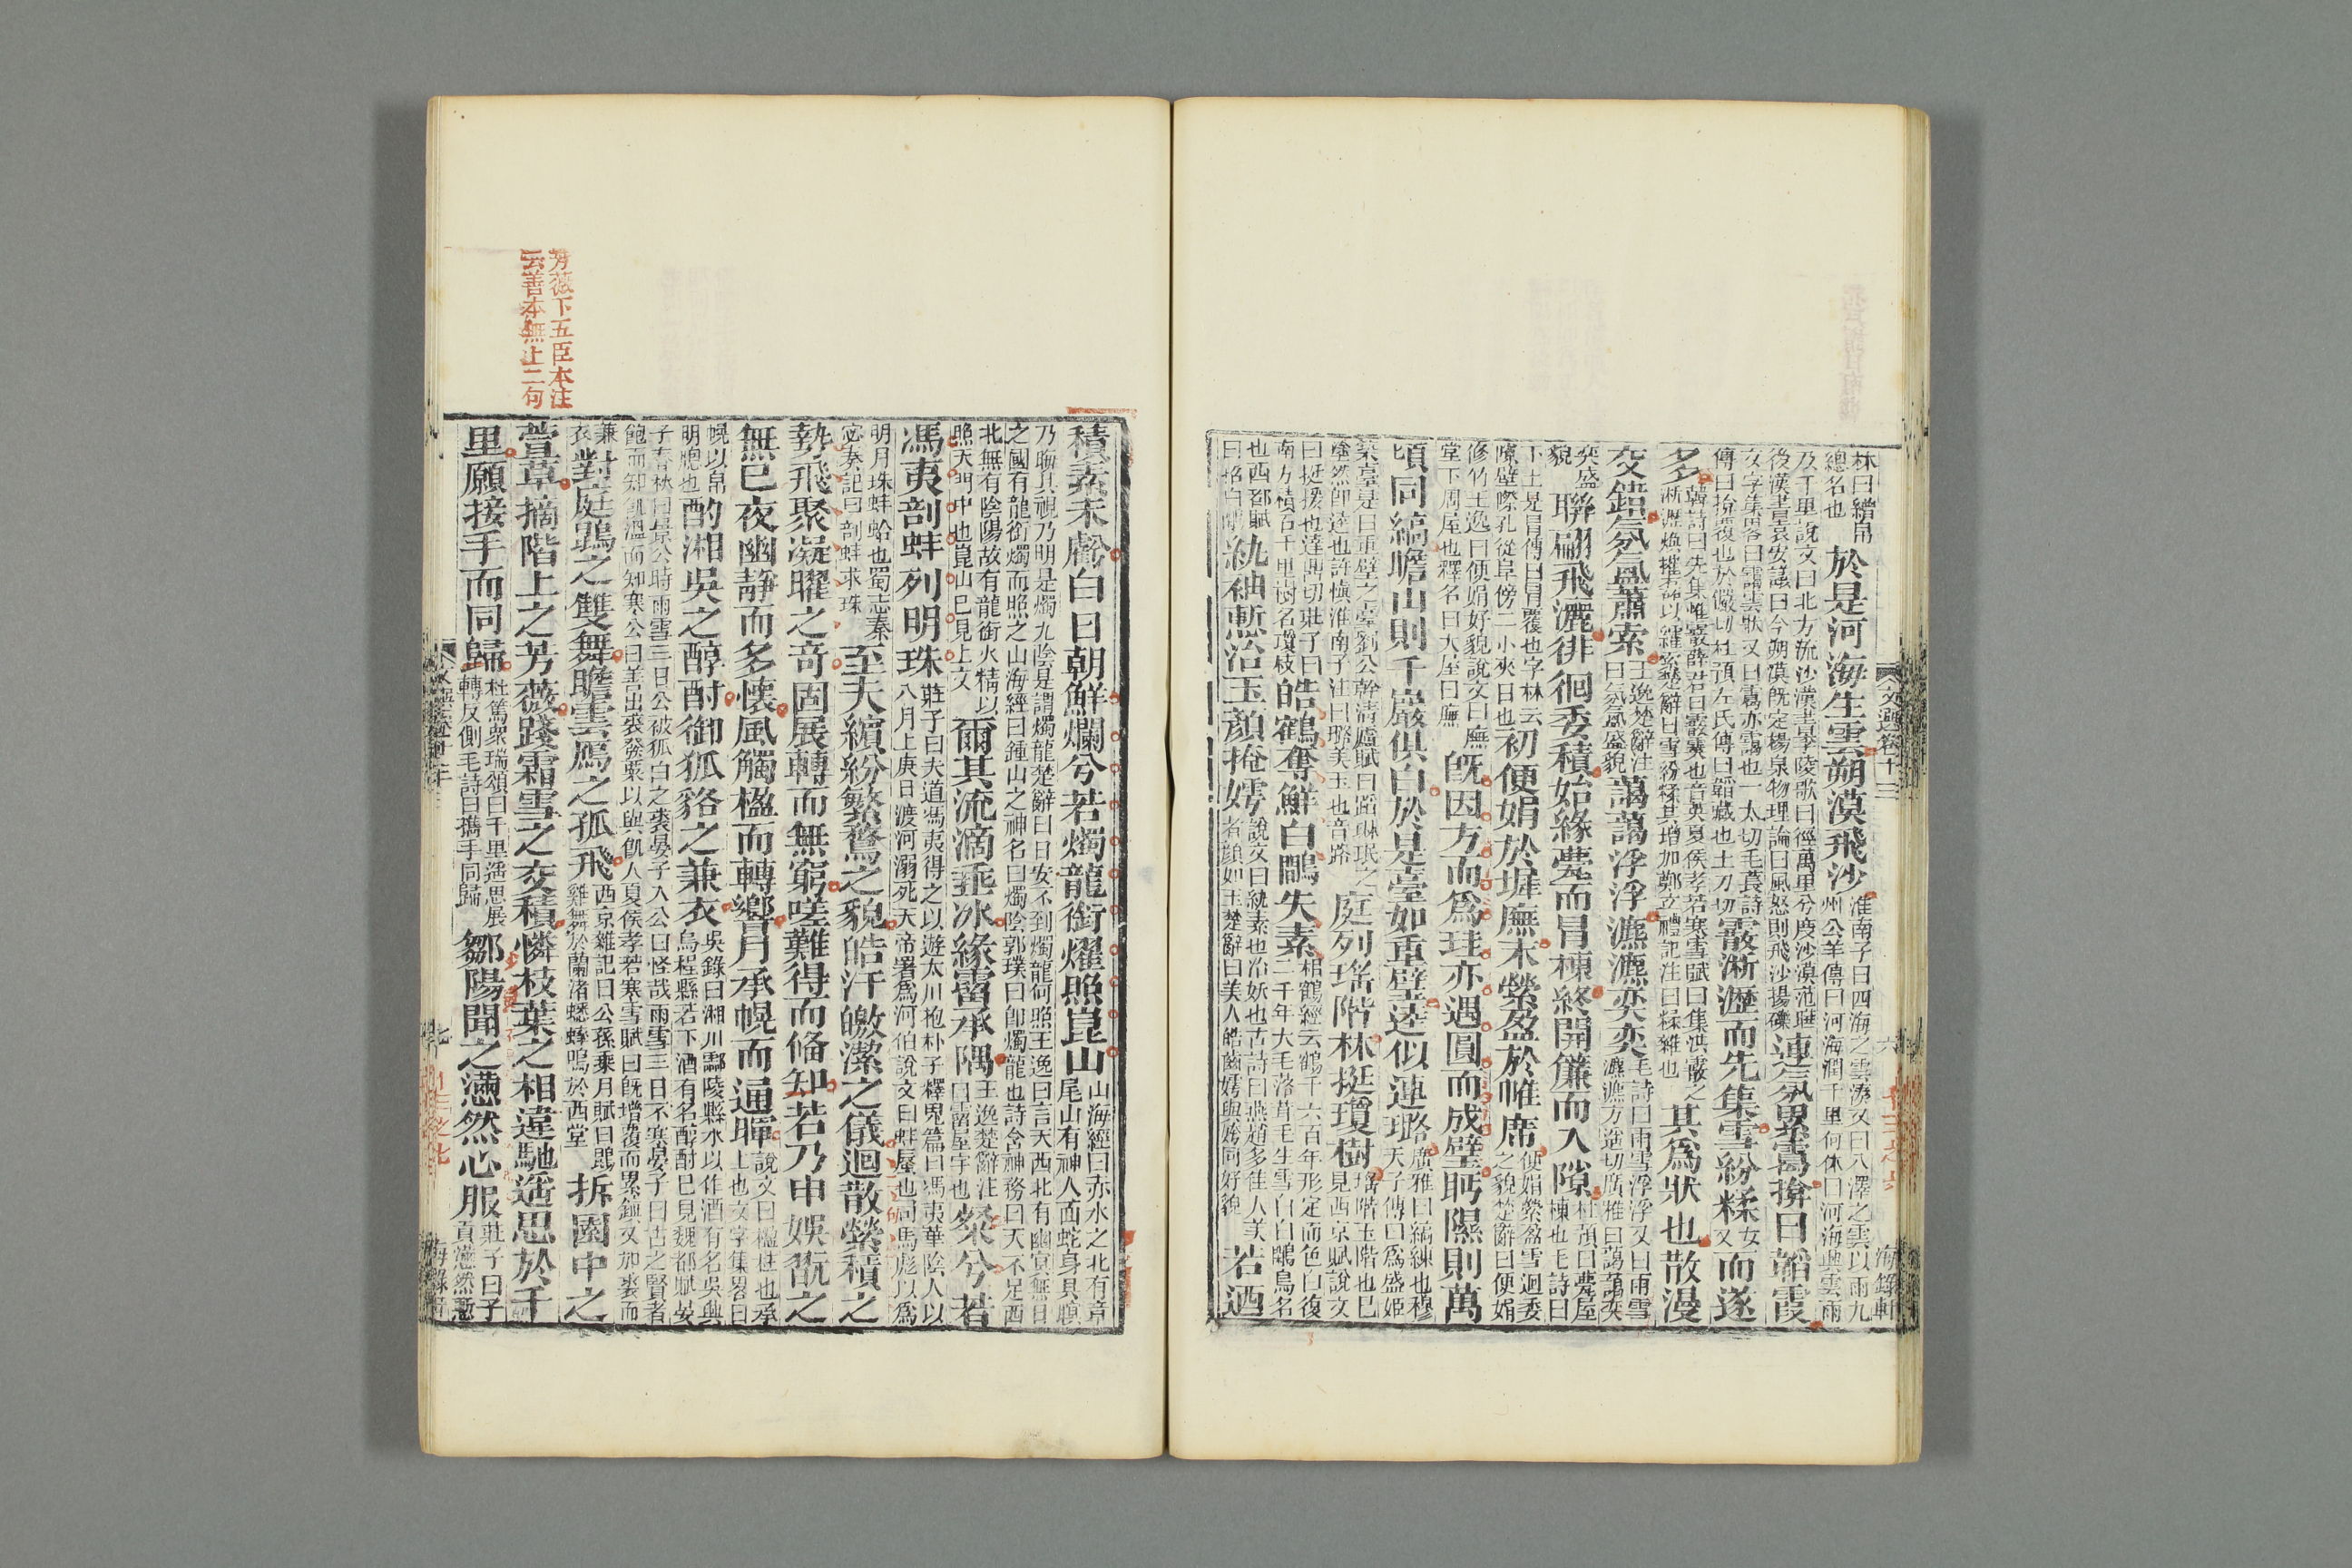 文選卷十三 六 海錄軒
林曰繒帛
總名也
於是河海生雲朔漠飛沙
淮南子曰四海之雲湊又曰八澤之雲以雨九
州公羊傳曰河海潤千里何休曰河海興雲雨
及千里說文曰北方流沙漢書李陵歌曰徑萬里兮度沙漠范曄
後漢書袁安議曰今朔漠既定楊泉物理論曰風怒則飛沙揚礫
連氛累靄揜日韜霞
文字集畧曰靄雲狀又曰靄亦靄也一太切毛萇詩
傳曰揜覆也於儼切杜預左氏傳曰韜藏也土刀切
霰淅瀝而先集雪紛糅女又而遂
多
韓詩曰先集惟霰薛君曰霰霙也音英夏侯孝若寒雪賦曰集洪霰之
淅瀝煥摧磊以纚索楚辭曰雪紛糅其增加鄭玄禮記注曰糅雜也
其爲狀也散漫
交錯氛氳蕭索
王逸楚辭注
曰氛氳盛貌
藹藹浮浮瀌瀌奕奕
毛詩曰雨雪浮浮又曰雨雪
瀌瀌方遙切廣雅曰藹藹奕
奕盛
貌
聯翩飛灑徘徊委積始緣甍而冒棟終開簾而入隙
杜預曰甍屋
棟也毛詩曰
下土是冒傳曰冒覆也字林云
隙壁際孔從阜傍二小夾日也
初便娟於墀廡末縈盈於帷席
便娟縈盈雪迴委
之貌楚辭曰便娟
修竹王逸曰便娟好貌說文曰廡
堂下周屋也釋名曰大屋曰廡
既因方而爲珪亦遇圓而成璧眄隰則萬
頃同縞瞻山則千巖俱白於是臺如重璧逵似連璐
廣雅曰縞練也穆
天子傳曰爲盛姬
築臺是曰重璧之臺劉公幹清廬賦曰蹈琳珉之
塗然卽逵也許慎淮南子注曰璐美玉也音路
庭列瑤階林挺瓊樹
瑤階玉階也已
見西京賦說文
曰挺拔也達鼎切莊子曰
南方積石千里樹名瓊枝
皓鶴奪鮮白鷴失素
相鶴經云鶴千六百年形定而色白復
二千年大毛落茸毛生雪白白鷴鳥名
也西都賦
曰招白鷴
紈袖慙冶玉顏掩嫮
說文曰紈素也冶妖也古詩曰燕趙多佳人美
者顏如玉楚辭曰美人皓齒嫮與姱同好貌
若迺
積素未虧白日朝鮮爛兮若燭龍銜燿照崑山
山海經曰赤水之北有章
尾山有神人面蛇身其瞑
乃晦其視乃明是燭九陰是謂燭龍楚辭曰日安不到燭龍何照王逸曰言天西北有幽冥無日
之國有龍銜燭而照之山海經曰鍾山之神名曰燭陰郭璞曰卽燭龍也詩含神務曰天不足西
北無有陰陽故有龍銜火精以
照天門中也崑山已見上文
爾其流滴垂冰緣霤承隅
王逸楚辭注
曰霤屋宇也
粲兮若
馮夷剖蚌列明珠
莊子曰夫道馮夷得之以遊太川抱朴子釋鬼篇曰馮夷華陰人以
八月上庚日渡河溺死天帝署爲河伯說文曰蚌蜃也司馬彪以爲
明月珠蚌蛤也蜀志秦
宓奏記曰剖蚌求珠
至夫繽紛繁騖之貌皓汗曒潔之儀迴散縈積之
勢飛聚凝曜之奇固展轉而無窮嗟難得而備知若乃申娛翫之
無已夜幽靜而多懷風觸楹而轉響月承幌而通暉
說文曰楹柱也承
上也文字集畧曰
幌以帛
明牕也
酌湘吳之醇酎御狐貉之兼衣
吳錄曰湘川酃陵縣水以作酒有名吳興
烏程縣若下酒有名醇酎已見魏都賦晏
子春秋曰景公時雨雪三日公被狐白之裘晏子入公曰怪哉雨雪三日不寒晏子曰古之賢者
飽而知飢溫而知寒公曰善出裘發粟以與飢人夏侯孝若寒雪賦曰既增覆而累鎮又加裘而
兼
衣
對庭鵾之雙舞瞻雲鴈之孤飛
西京雜記曰公孫乘月賦曰鵾
雞舞於蘭渚蟋蟀鳴於西堂
折園中之
萱草摘階上之芳薇踐霜雪之交積憐枝葉之相違馳遙思於千
里願接手而同歸
杜篤眾瑞頌曰千里遙思展
轉反側毛詩曰攜手同歸
鄒陽聞之懣然心服
莊子曰子
貢懣然慙
芳薇下五臣本注
云善本無上二句